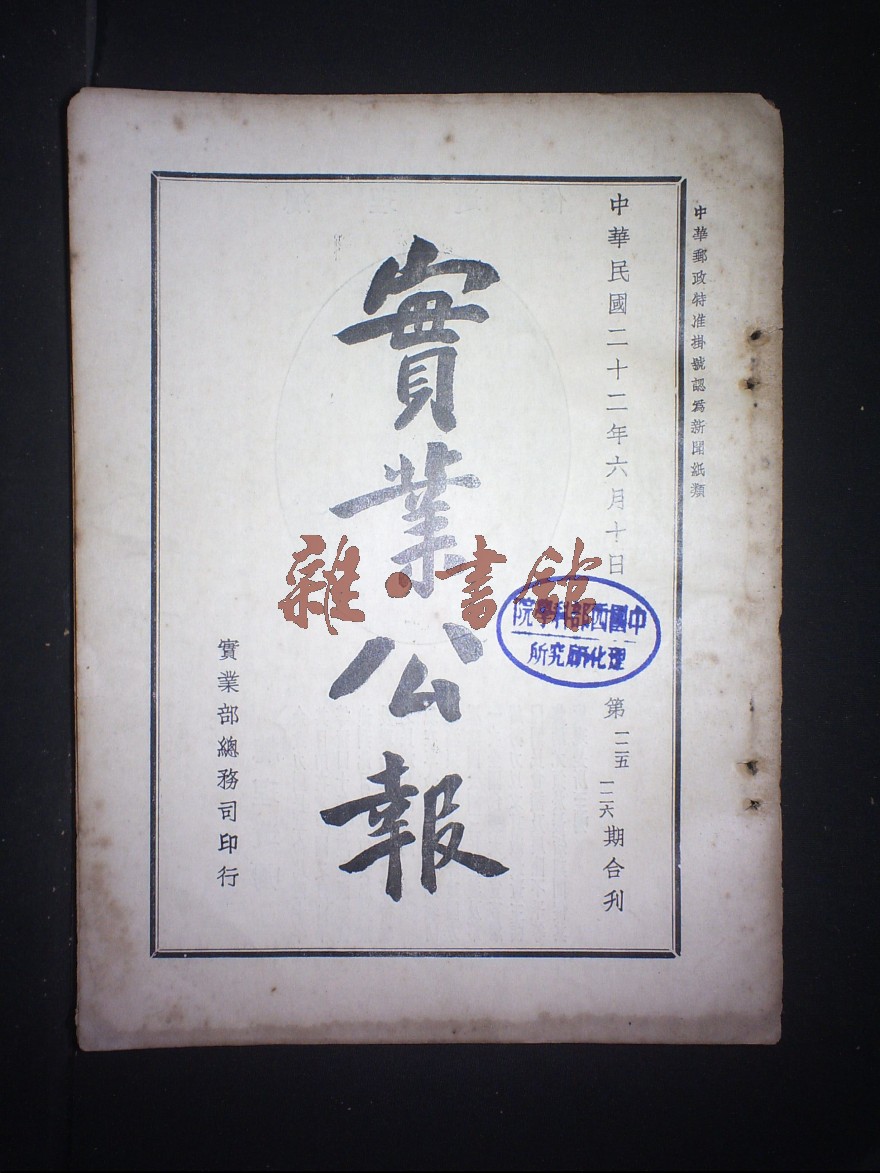 中華郵政特准掛號認爲新聞紙類
中華民國二十二年六月十日
第一二五 一二六期合刊
實業公報
實業部總務司印行
中國西部科學院
理化研究所
雜·書館